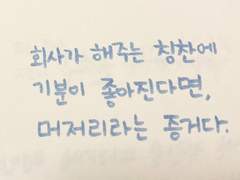 회사가 해주는 칭찬에
기분이 좋아진다면,
머저리라는 증거다.